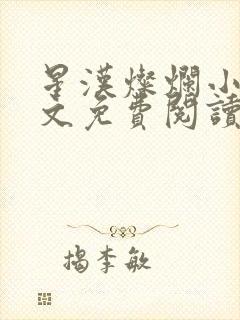 星漢燦爛小
文免費閱讀
揭李敏